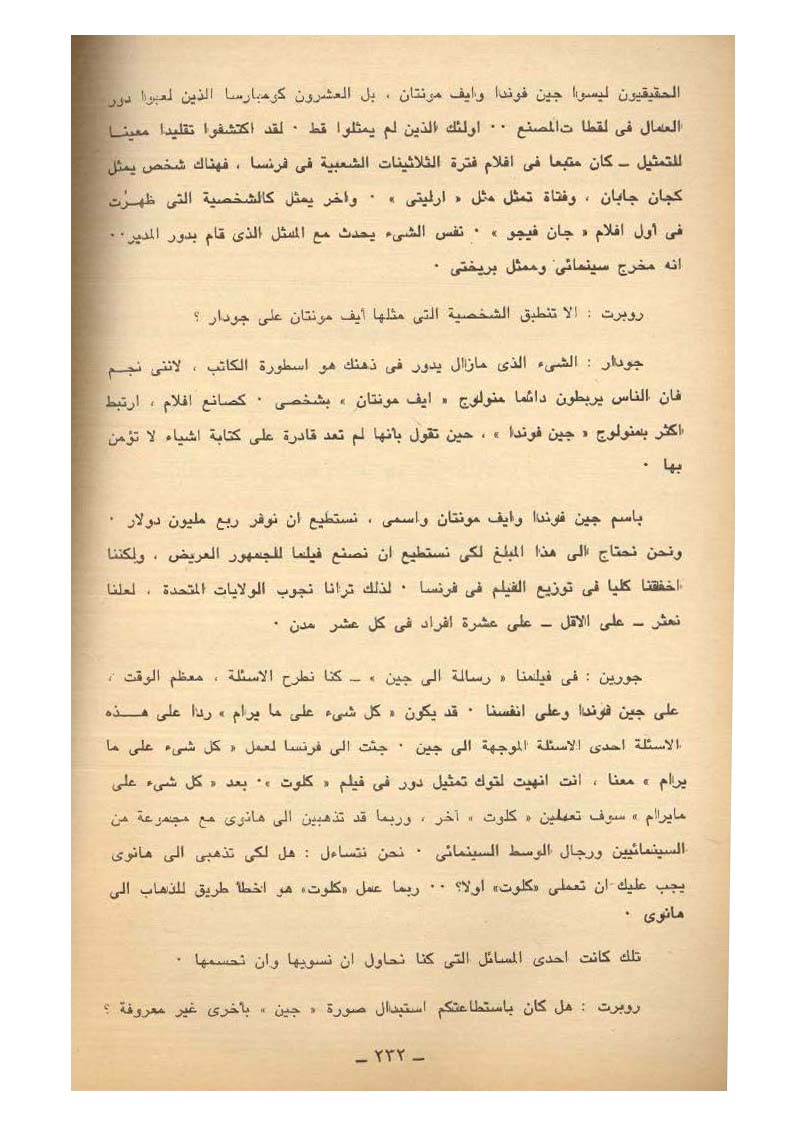 الحقيقيون ليسوا جين فوندا وايف مونتان ، بل العشرون كومبارسا الذين لعبوا دور
العمال فى لقطات المصنع ٠٠ اولئك الذين لم يمثلوا قط ٠ لقد اكتشفوا تقليدا معينا
للتمثيل ــ كان متبعا فى افلام فترة الثلاثينات الشعبية فى فرنسا ، فهناك شخص يمثل
كجان جابان ، وفتاة تمثل مثل « ارليتى » ٠ واخر يمثل كالشخصية التى ظهرت
فى أول افلام « جان فيجو » ٠ نفس الشىء يحدث مع الممثل الذى قام بدور المدير ٠٠
انه مخرج سينمائى وممثل بريختى ٠
روبرت : الا تنطبق الشخصية التى مثلها أيف مونتان على جودار ؟
جودار : الشىء الذى مازال يدور فى ذهنك هو اسطورة الكاتب ، لاننى نجم
فان الناس يربطون دائما منولوج « ايف مونتان » بشخصى ٠ كصانع افلام ، ارتبط
اكثر بمنولوج « جين فوندا » ، حين تقول بأنها لم تعد قادرة على كتابة اشياء لا تؤمن
بها ٠
باسم جين فوندا وايف مونتان واسمى ، نستطيع ان نوفر ربع مليون دولار ٠
ونحن نحتاج الى هذا المبلغ لكى نستطيع ان نصنع فيلما للجمهور العريض ، ولكننا
اخفقنا كليا فى توزيع الفيلم فى فرنسا ٠ لذلك ترانا نجوب الولايات المتحدة ، لعلنا
نعثر ــ على الاقل ــ على عشرة افراد فى كل عشر مدن ٠
جورين : فى فيلمنا « رسالة الى جين » ــ كنا نطرح الاسئلة ، معظم الوقت ،
على جين فوندا وعلى انفسنا ٠ قد يكون « كل شىء على ما يرام » ردا على هذه
الاسئلة احدى الاسئلة الموجهة الى جين ٠ جئت الى فرنسا لعمل « كل شىء على ما
يرام » معنا ، انت انهيت لتوك تمثيل دور فى فيلم « كلوت » ٠ بعد « كل شىء على
مايرام » سوف تعملين « كلوت » آخر ، وربما قد تذهبين الى هانوى مع مجموعة من
السينمائيين ورجال الوسط السينمائى ٠ نحن نتساءل : هل لكى تذهبى الى هانوى
يجب عليك ان تعملى «كلوت» اولا؟ ٠٠ ربما عمل «كلوت» هو اخطأ طريق للذهاب الى
هانوى ٠
تلك كانت احدى المسائل التى كنا نحاول ان نسويها وان نحسمها ٠
روبرت : هل كان باستطاعتكم استبدال صورة « جين » بأخرى غير معروفة ؟
ــ ٢٣٢ ــ